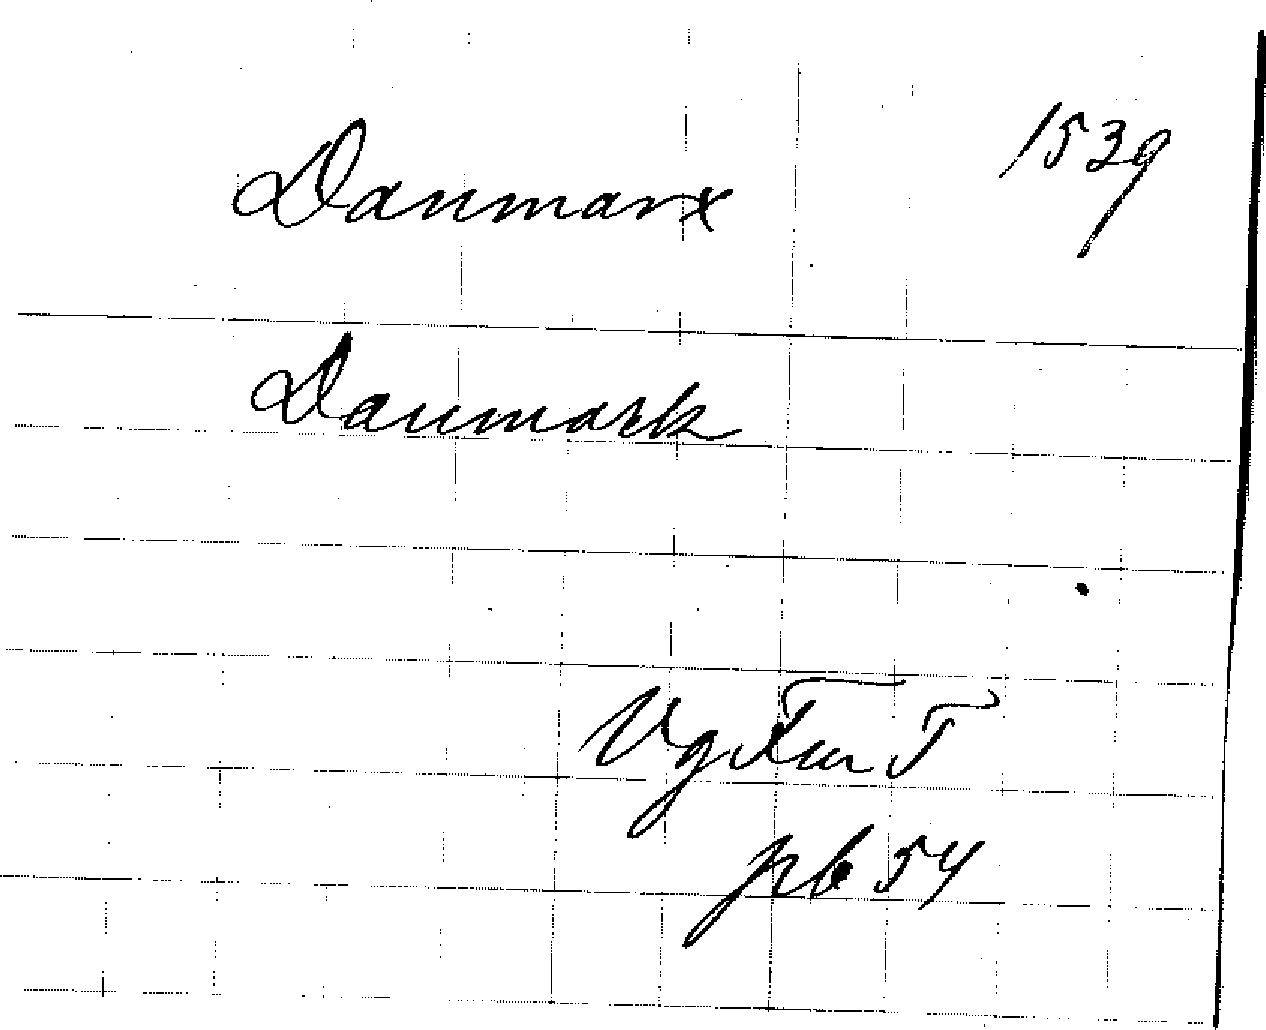 Danmarx 1539
Danmark
Vg Tun T
pb 54